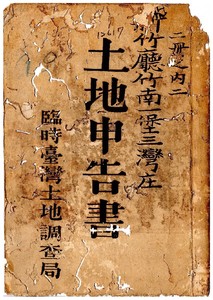 二冊之内二
竹廳竹南一堡三灣庄
12617
土地申告書
臨時臺灣土地調查局